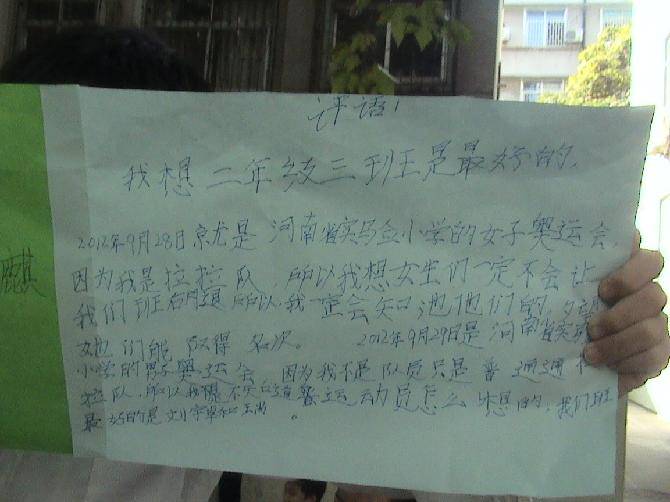 评语!
我想二年级三班是最好的,
2012年9月28日就是河南省实验小学的女子奥运会,
因为我是拉拉队,所以我想女生们一定不会让
我们班 所以我一定会 他们的,
她们能取得名次。 2012年9月29日是河南省实验
小学的男子奥运会 因为我不是队员只是普通通
拉队,所以我 不知道 运动员怎么想的,我们班
最好的是 和 。
麒